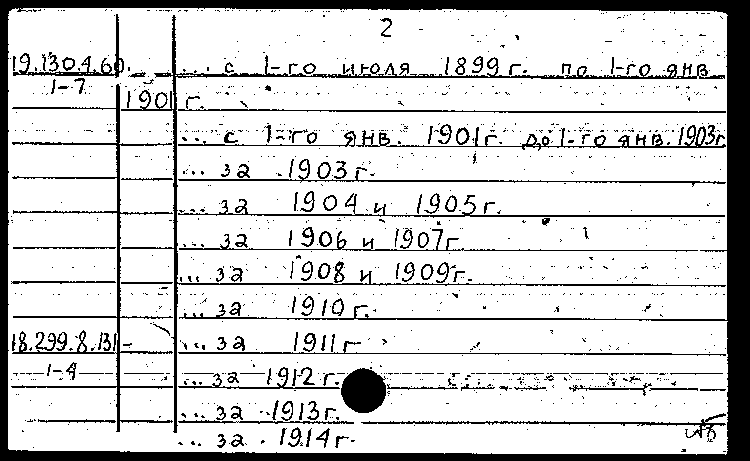 2
19.130.4.60. ... с 1-го июля 1899 г. по 1-го янв.
1-7 1901 г.
... с 1-го янв. 1901 г. до 1-го янв. 1903 г.
... за 1903 г.
... за 1904 и 1905 г.
... за 1906 и 1907 г.
... за 1908 и 1909 г.
... за 1910 г.
18.299.8.131- ... за 1911 г.
1-4 ... за 1912 г.
... за 1913 г.
... за 1914 г.